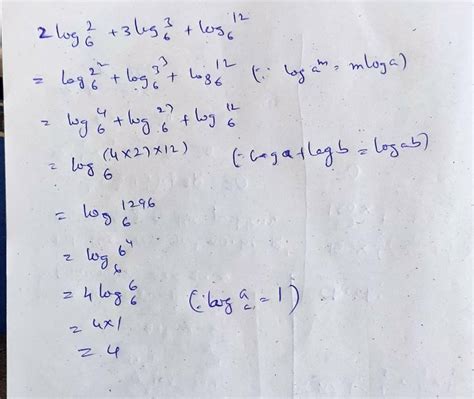 2 log₆² + 3 log₆³ + log₆¹²
= log₆^{2²} + log₆^{3³} + log₆¹² (∵ log aᵐ = m log a)
= log₆⁴ + log₆²⁷ + log₆¹²
= log₆^{(4×27×12)} (∵ log a + log b = log ab)
= log₆¹²⁹⁶
= log₆^{6⁴}
= 4 log₆⁶ (∵ logₐᵃ = 1)
= 4×1
= 4